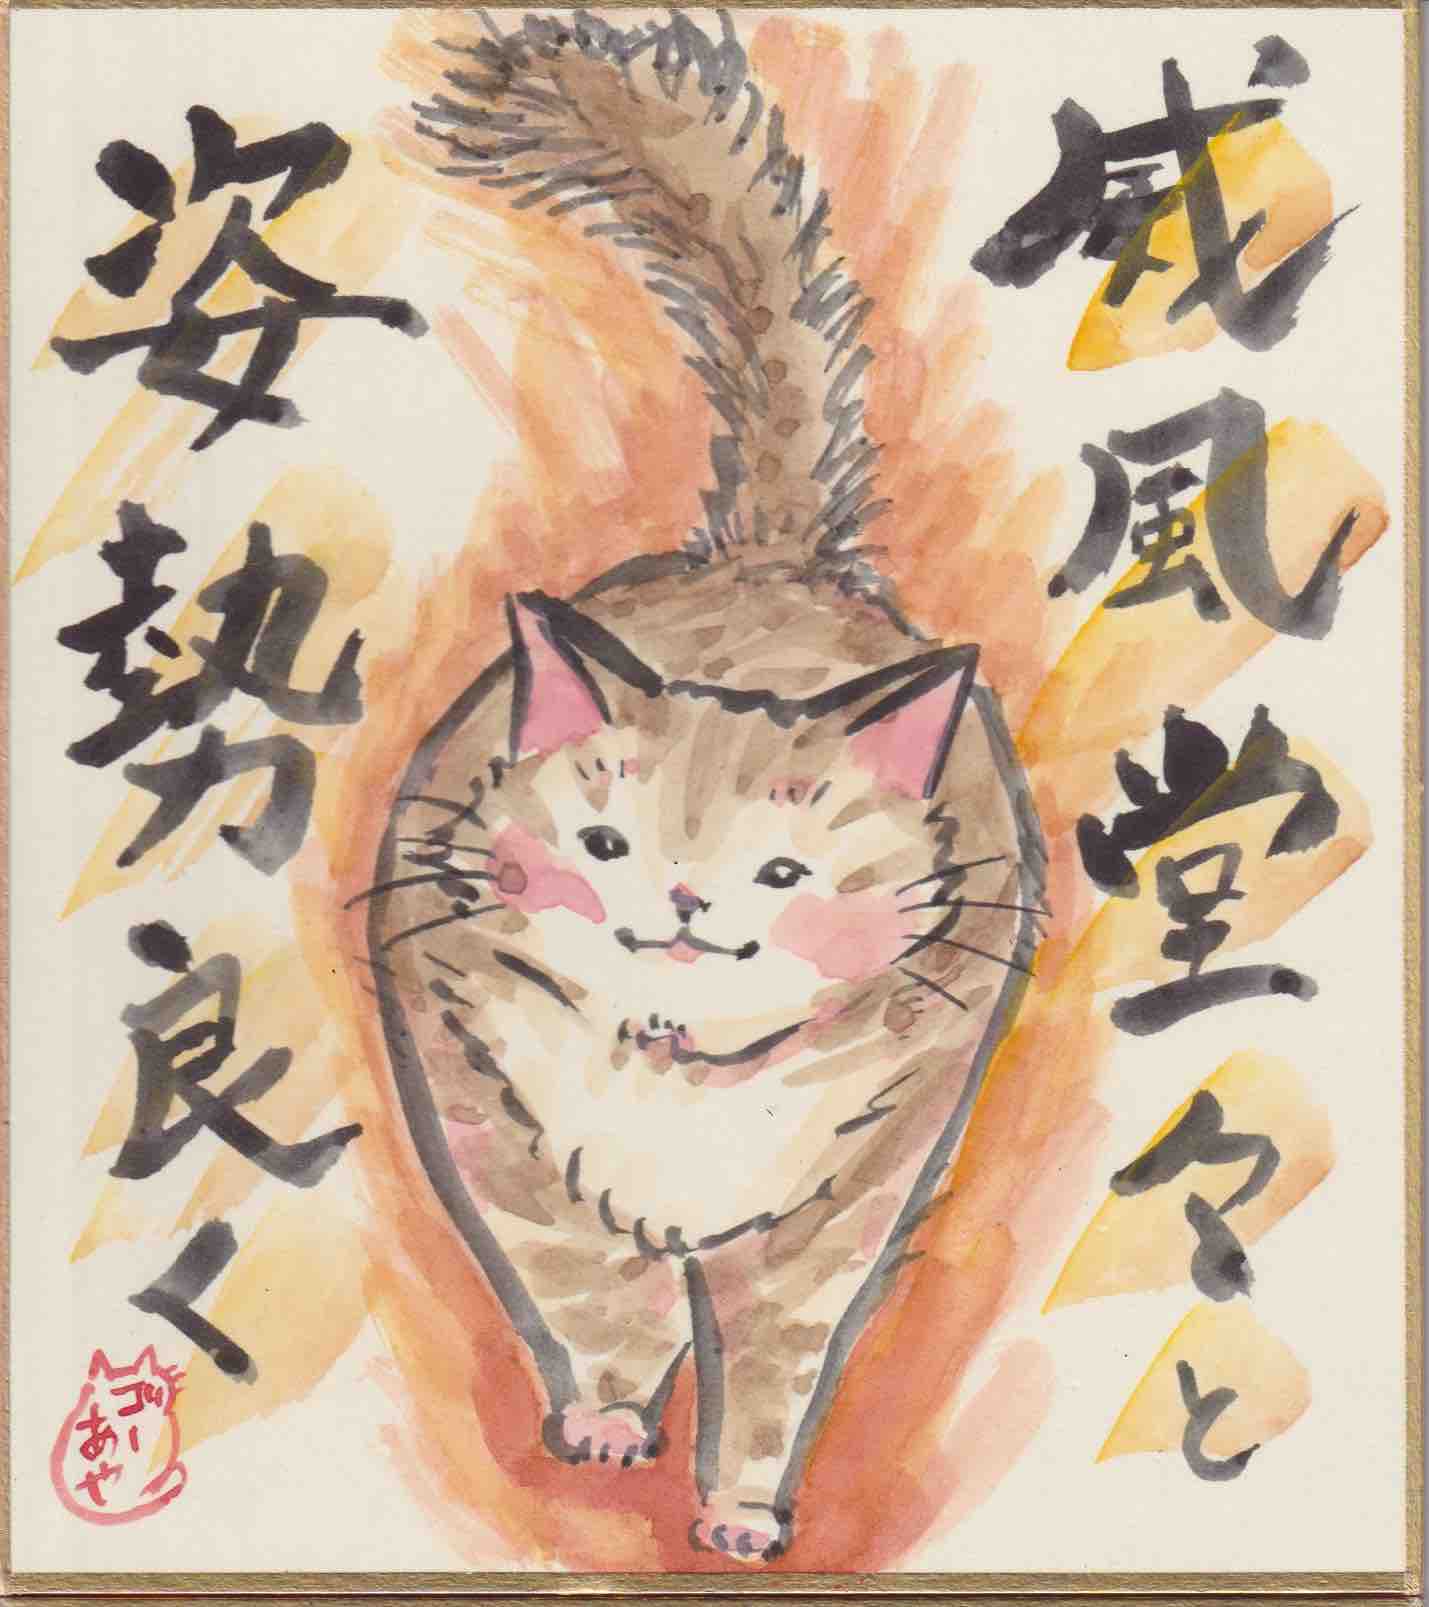 威風堂々と
姿勢良く
ゴー
あや